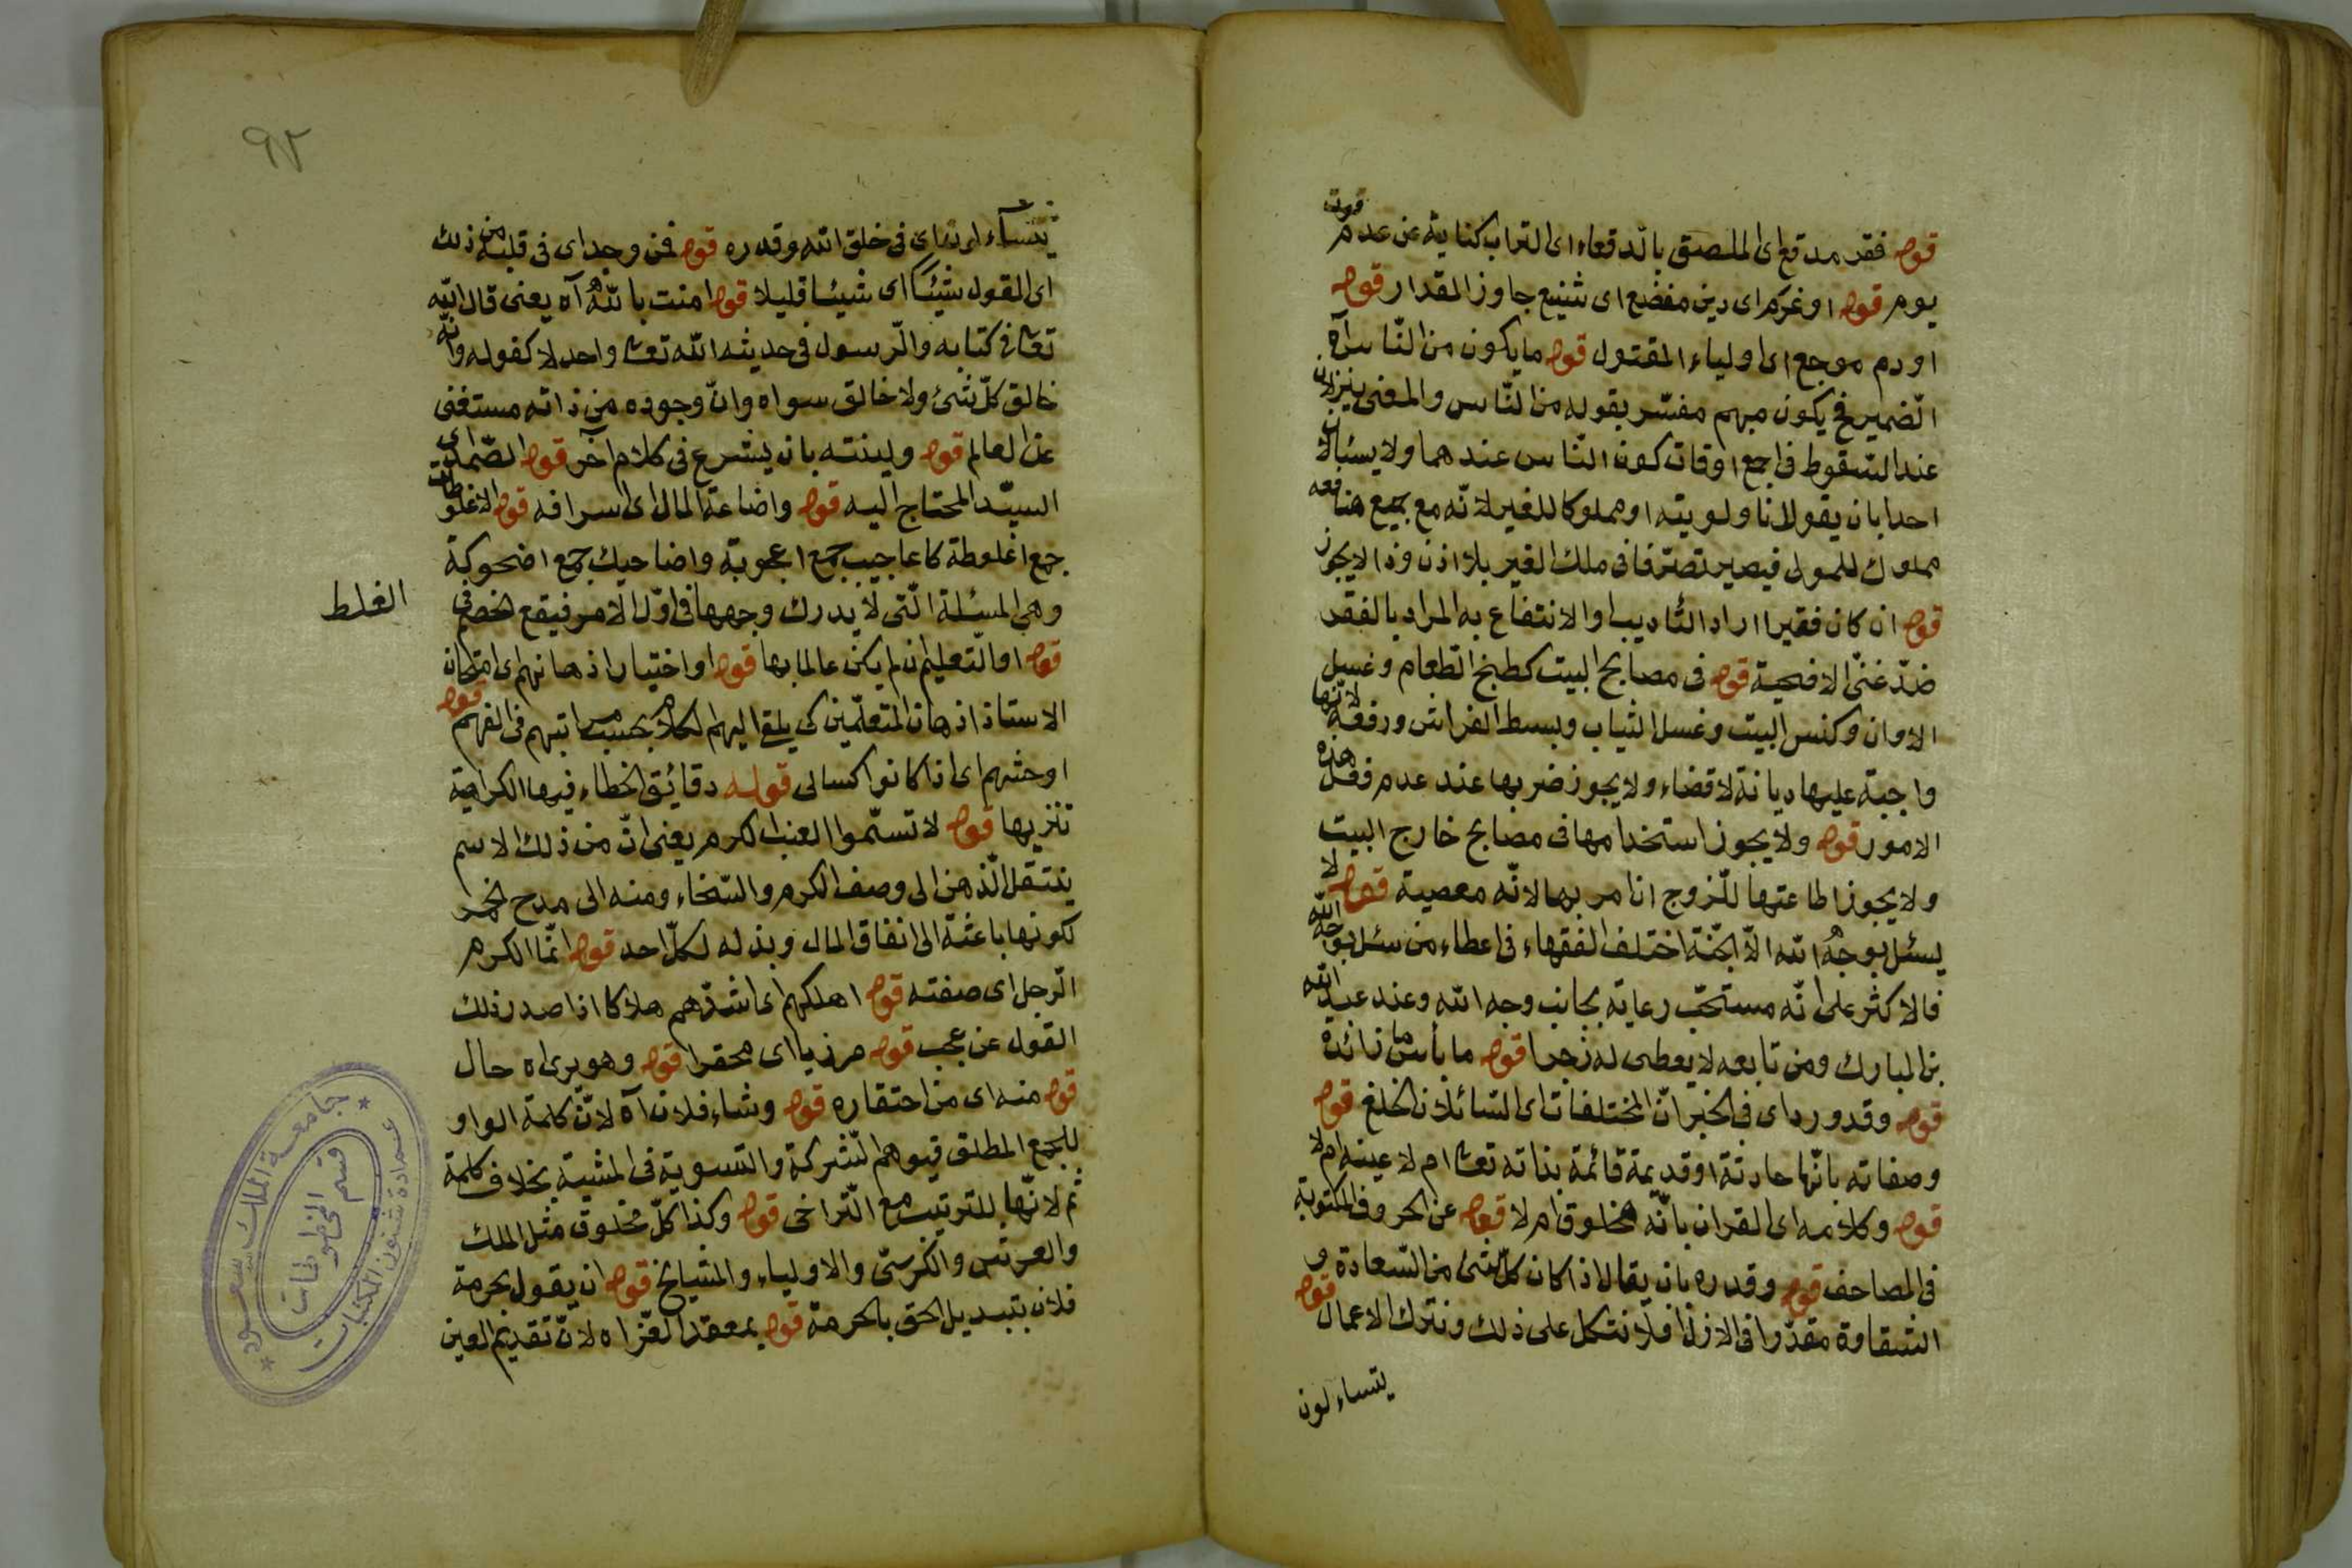 قوله فقر مدقع اى الملصق بالدقعاء اى التراب كناية عن عدم قوت
يوم قوله او غرم اى دين مفضع اى شنيع جاوز المقدار قوله
او دم موجع اى اولياء المقتول قوله ما يكون من النّاس آه
الضمير فح يكون مبهم مفسّر بقوله من النّاس والمعنى ينزلان
عند السّقوط فى اجمع اوقات كون النّاس عندهما ولا يسئلا
احدا بان يقول ناولويته او مملوكا للغير لانّه مع جميع منافعه
مملوك للمولى فيصير تصرّفا فى ملك الغير بلا اذن وذا لا يجوز
قوله ان كان فقيرا اراد التّاديب او الانتفاع به المراد بالفقر
ضدّ غنىّ الاضحية قوله فى مصابح البيت كطبخ الطّعام وغسل
الاوان وكنس البيت وغسل الثياب وبسط الفراش ورفعه لانّها
واجبة عليها ديانة لا قضاء ولا يجوز ضربها عند عدم فعل هذه
الامور قوله ولا يجوز استخدامها فى مصابح خارج البيت
ولا يجوز اطاعتها للزوج اذا مر بها لانّه معصية قوله لا
يسئل بوجه الله الاّ الجنّة اختلف الفقهاء فى اعطاء من سئل بوجه الله
فالاكثر على انّه مستحبّ رعاية بجانب وجه الله وعند عبد الله
بن المبارك ومن تابعه لا يعطى له زجرا قوله ما بأس ما زائدة
قوله وقد ورد اى فى الخبر انّ المختلفات اى السّائلان الخلغ قوله
وصفاته بانّها حادثة او قديمة قائمة بذاته تعالى ام لا عينه ام لا
قوله وكلامه اى القران بانّه مخلوق ام لا قوله عن الحروف المكتوبة
فى المصاحف قوله وقدره بان يقال اذا كان كلّ شئ من السّعادة و
الشقاوة مقدّرا فى الازل افلا نتكل على ذلك ونترك الاعمال قوله
يتساءلون
٩٢
يتساءلون اى فى خلق الله وقدره قوله فمن وجد اى فى قلبه من ذلك
اى المقول شيئًا اى شيئا قليلا قوله امنت بالله آه يعنى قال الله
تعالى فى كتابه والرّسول فى حديثه الله تعالى واحد لا كفو له وانّه
خالق كلّ شئ ولا خالق سواه وانّ وجوده من ذاته مستغنى
عن العالم قوله ولينته بان يشرع فى كلام آخر قوله الصّمد اى
السيّد المحتاج اليه قوله واضاعة المال اى اسرافه قوله الاغلوطات
جمع اغلوطة كاعاجيب جمع اعجوبة واضاحيك جمع اضحوكة
وهى المسئلة الّتى لا يدرك وجهها فى اوّل الامر فيقع الخصم فى
الغلط
قوله او التّعليم ان لم يكن عالما بها قوله او اختيار اذهانهم اى امتحان
الاستاذ اذهان المتعلّمين كى يلقى اليهم الكلام بحسب مراتبهم فى الفهم قوله
او حثهم اى اذا كانوا كسالى قوله دقائق الخطاء فيها الكراهية
تنزيها قوله لا تسمّوا العنب الكرم يعنى انّ من ذلك الاسم
ينتقل الذّهن الى وصف الكرم والسّخاء ومنه الى مدح الخمر
لكونها باعثة الى انفاق المال وبذله لكلّ احد قوله انّما الكرم
الرّجل اى صفته قوله اهلكهم اى اشدّهم هلاكا اذا صدر ذلك
القول عن عجب قوله مرزيا اى محقرا قوله وهو يرى اه حال
قوله منه اى من احتقاره قوله وشاء فلان آه لانّ كلمة الواو
للجمع المطلق فيوهم الشركة والتسوية فى المشية بخلاف كلمة
ثم لانّها للترتيب مع التّراخى قوله وكذا كلّ مخلوق مثل الملك
والعرش والكرسىّ والاولياء والمشيايخ قوله ان يقول بحرمة
فلان بتبديل الحق بالحرمة قوله بمعقد العزّ اه لانّ تقديم العين
جامعة الملك سعود
عمادة شئون المكتبات
قسم المخطوطات